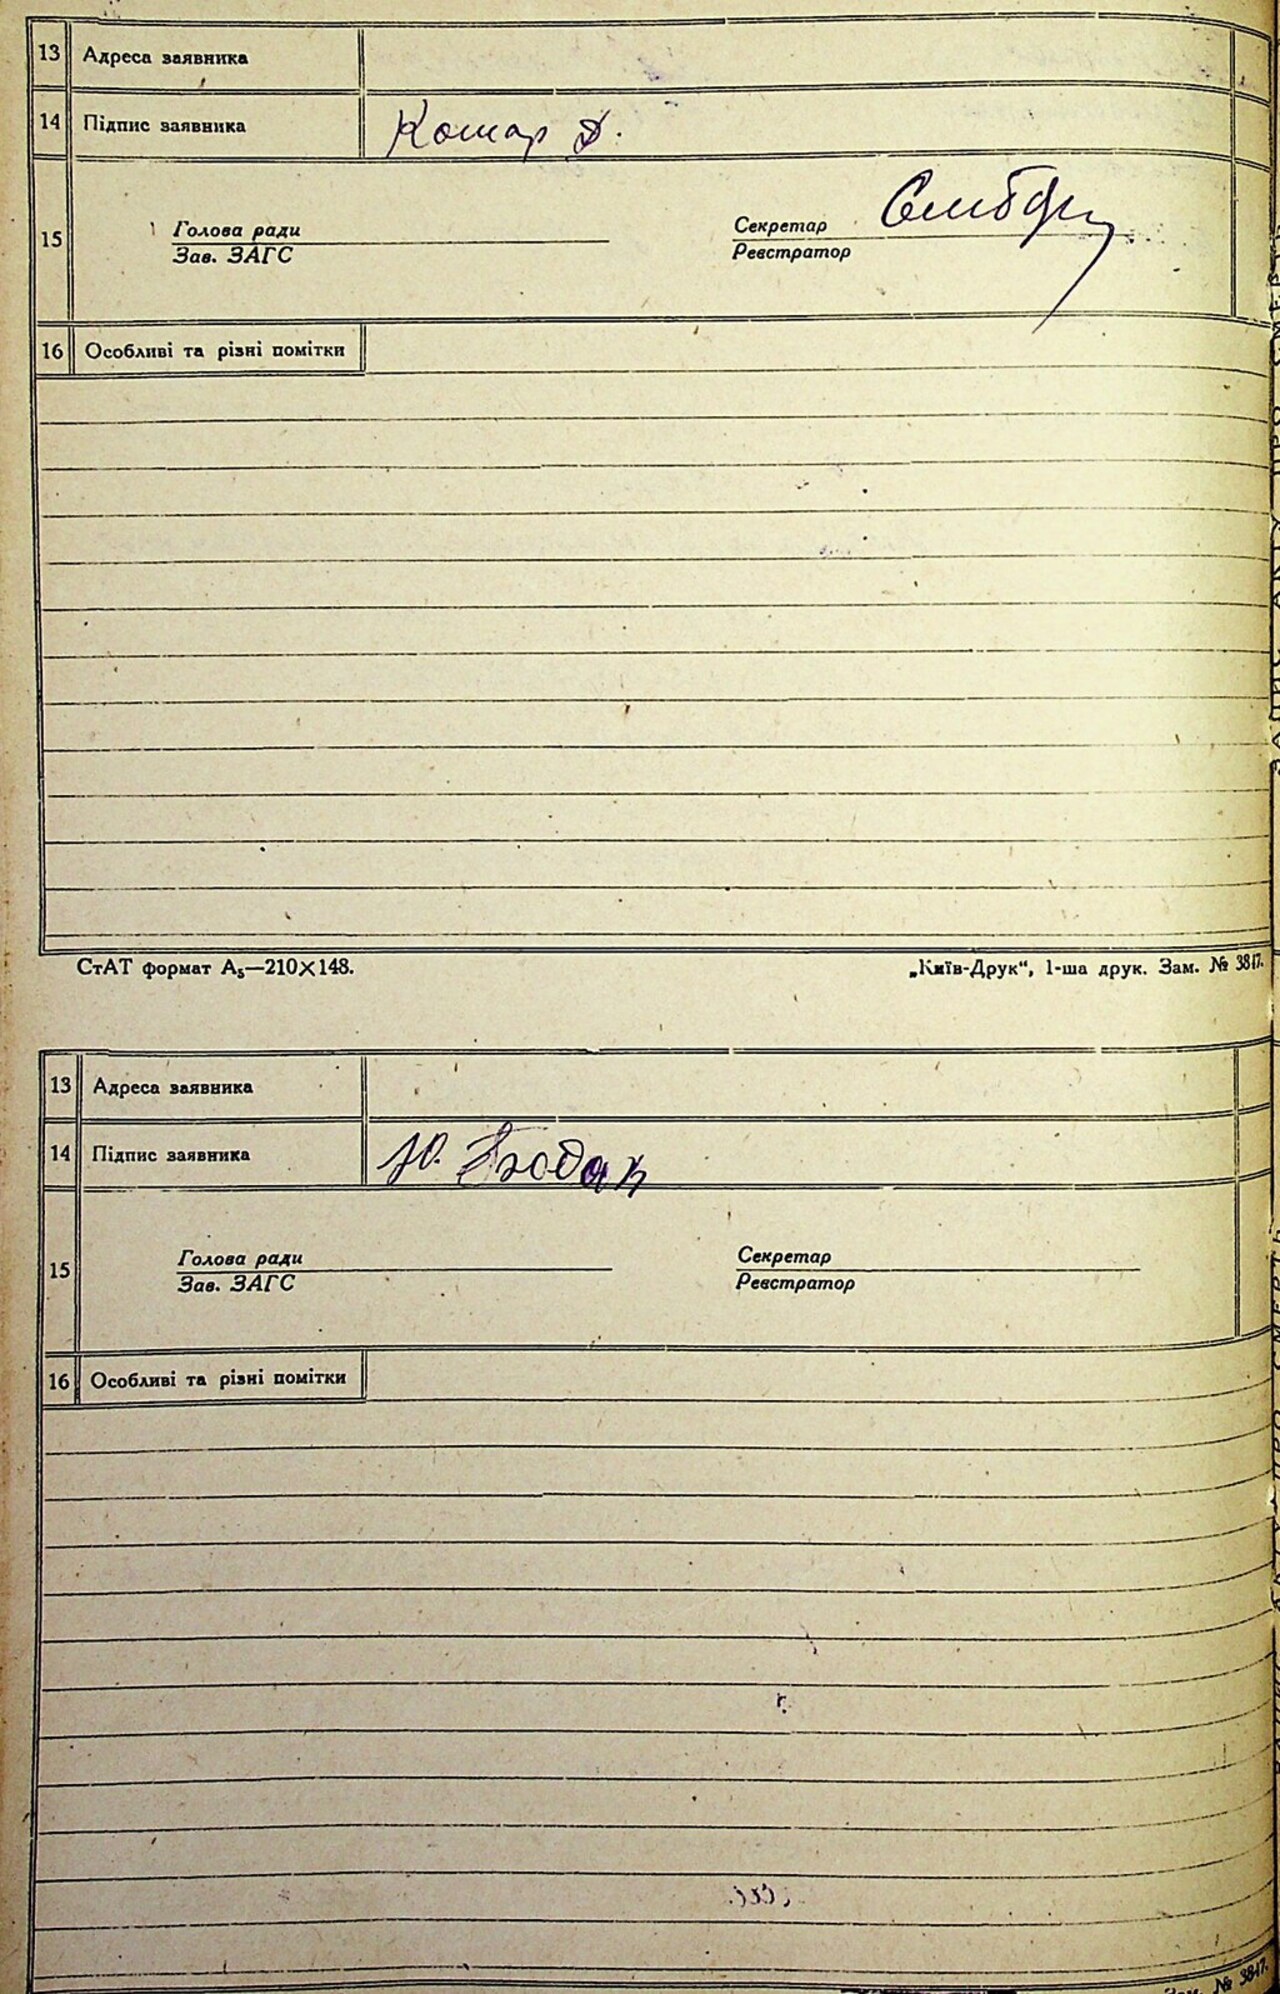 13 Адреса заявника
14 Підпис заявника Кошар Д.
15 Голова ради Секретар
Зав. ЗАГС Реєстратор
16 Особливі та різні помітки
СтАТ формат А₅—210×148. „Київ-Друк“, 1-ша друк. Зам. № 3817.
13 Адреса заявника
14 Підпис заявника Ю.
15 Голова ради Секретар
Зав. ЗАГС Реєстратор
16 Особливі та різні помітки
№ 3817.